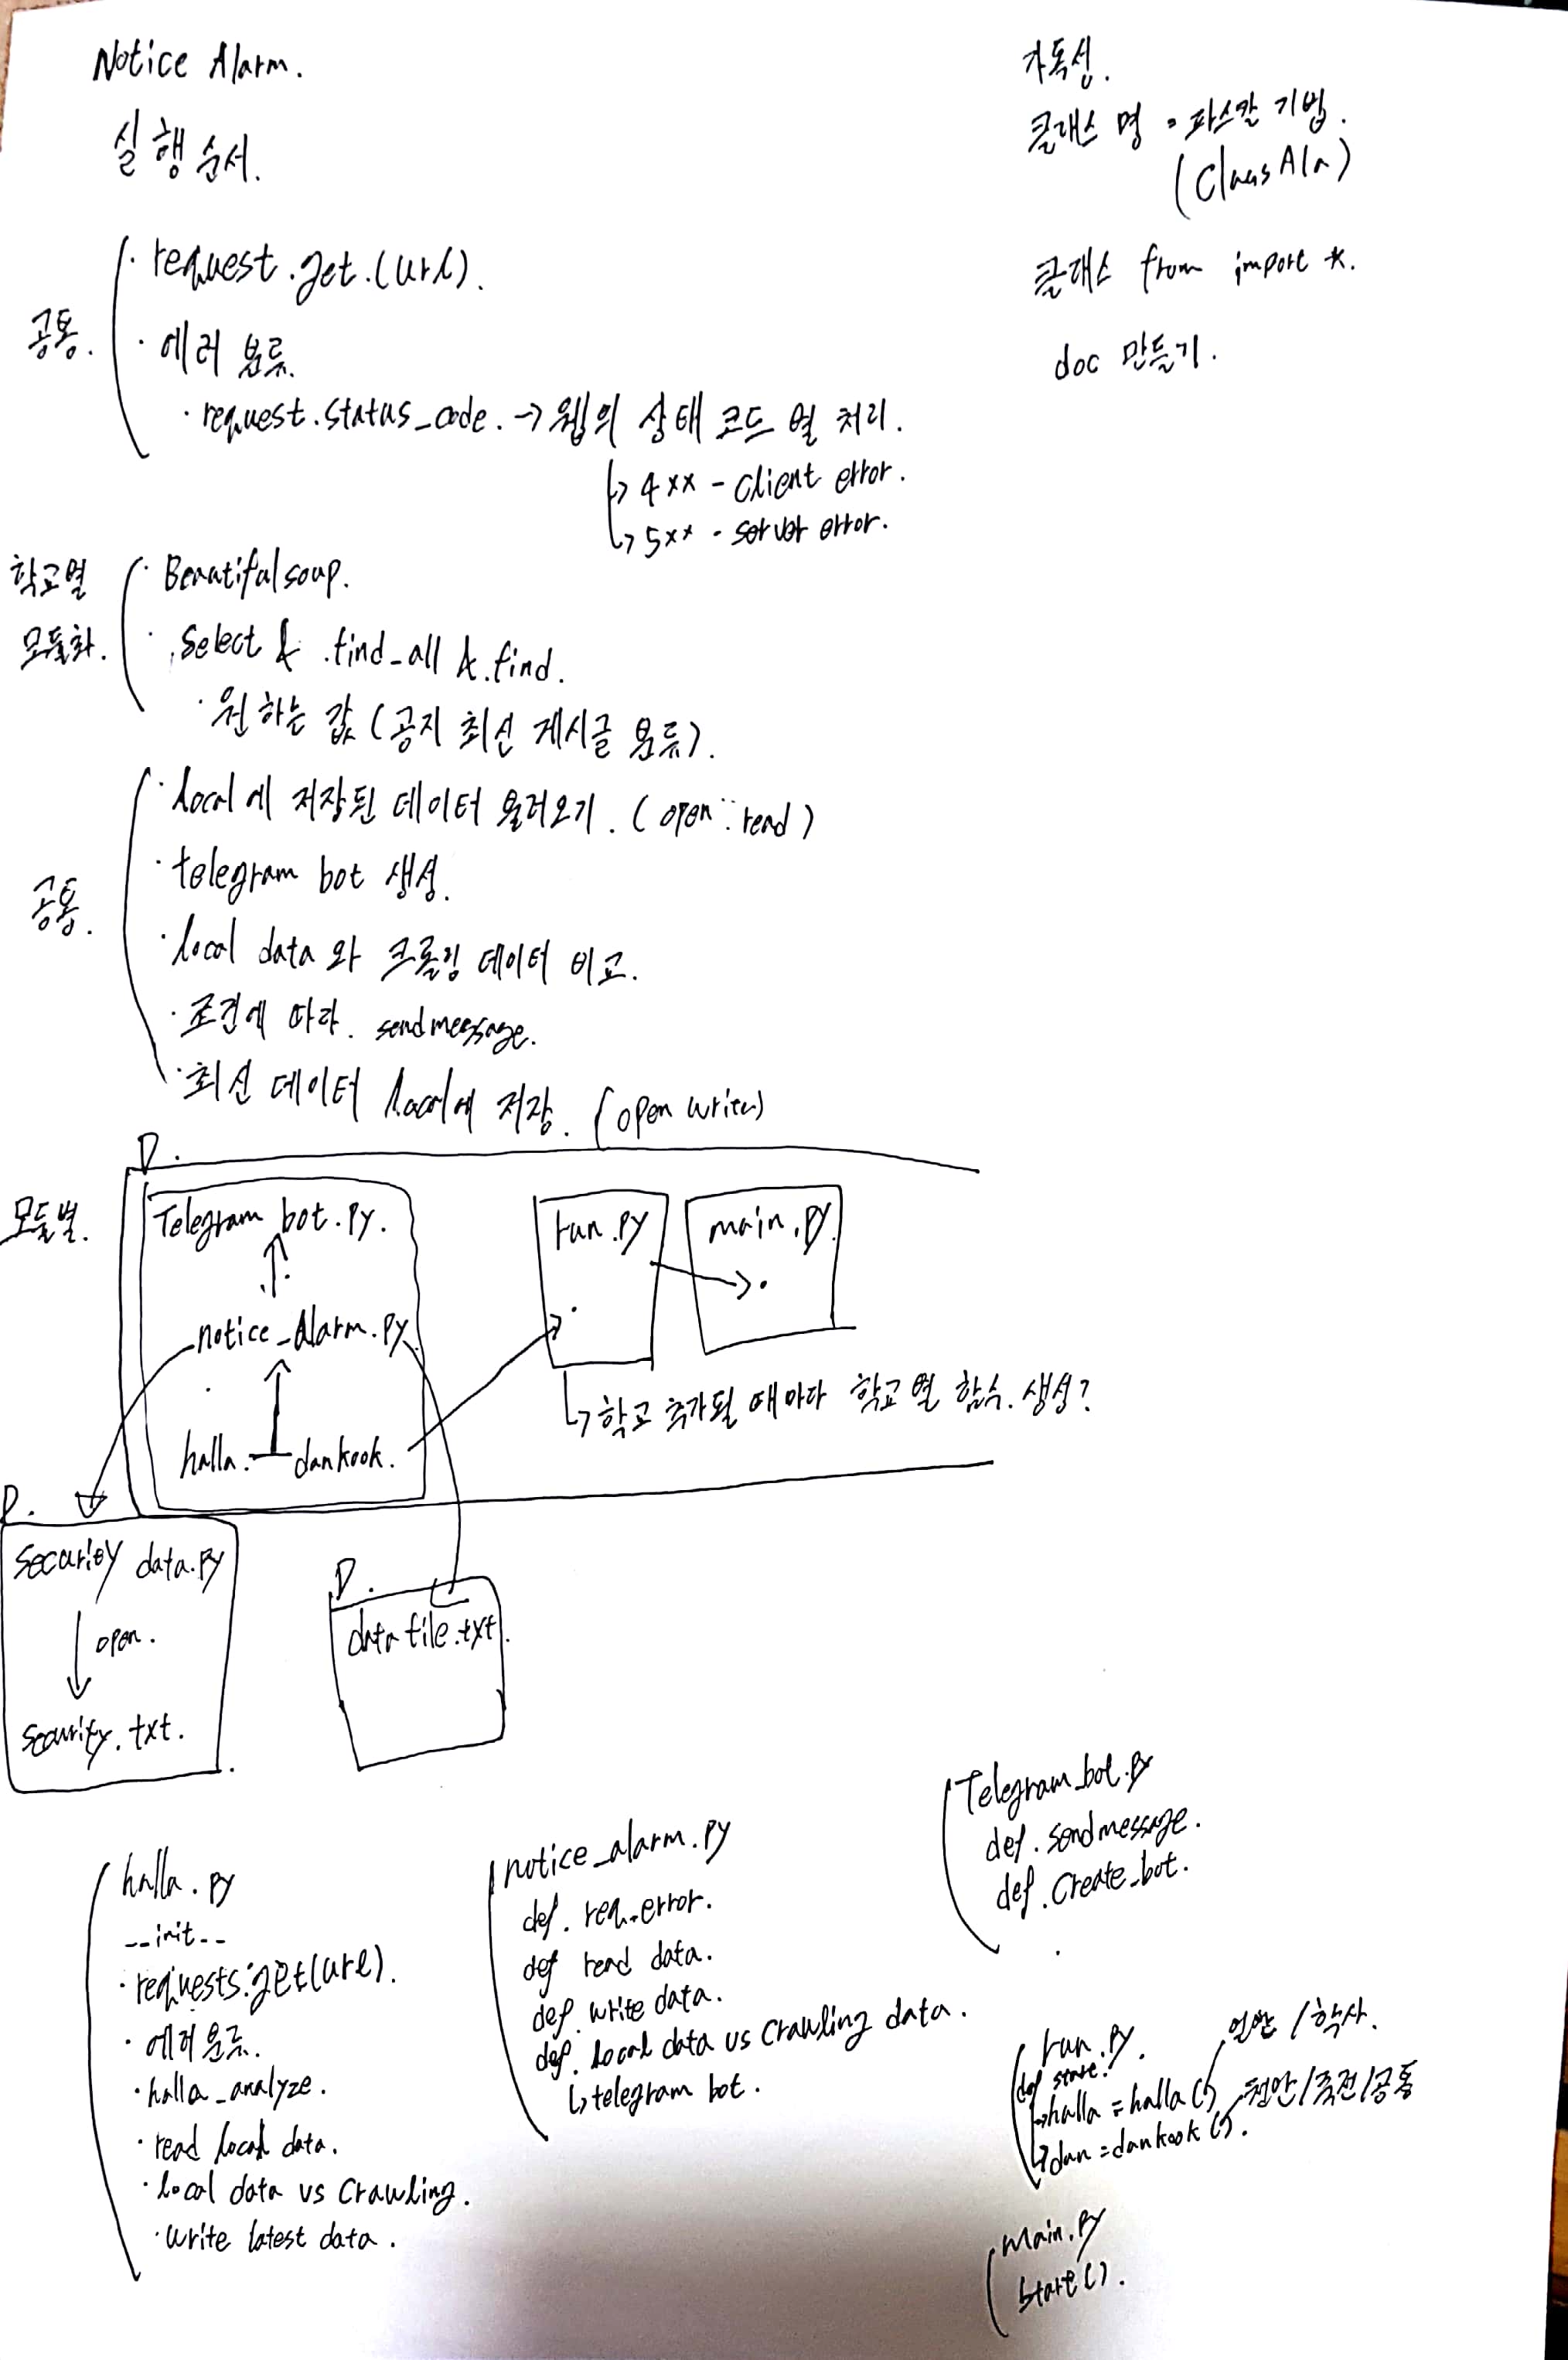 Notice Alarm.
실행 순서.
공통.
· request.get.(url).
· 에러 분류.
· request.status_code. → 웹의 상태 코드 별 처리.
↳ 4xx - client error.
↳ 5xx - server error.
학교별
모듈화.
· Beautifulsoup.
· .select & .find_all & .find.
· 원하는 값 (공지 최신 게시글 분류).
공통.
· local에 저장된 데이터 불러오기. (open : read)
· telegram bot 생성.
· local data 와 크롤링 데이터 비교.
· 조건에 따라. sendmessage.
· 최신 데이터 local에 저장. (open write)
가독성.
클래스 명 = 파스칼 기법.
(ClassAla)
클래스 from import *.
doc 만들기.
모듈별.
D.
Telegram bot.py.
notice_Alarm.py
halla. dankook.
run.py
main.py
↳ 학교 추가될 때마다 학교별 함수. 생성?
D.
security data.py
open.
security.txt.
D.
data file.txt.
halla.py
__init__
· requests.get(url).
· 에러 분류.
· halla_analyze.
· read local data.
· local data vs Crawling.
· write latest data.
notice_alarm.py
def. req_error.
def read data.
def. write data.
def. local data vs Crawling data.
↳ telegram bot.
Telegram_bot.py
def. sendmessage.
def. Create_bot.
run.py.
def start.
↳ halla = halla() 일반 / 학사.
↳ dan = dankook(). 천안/죽전/공통
main.py
start().